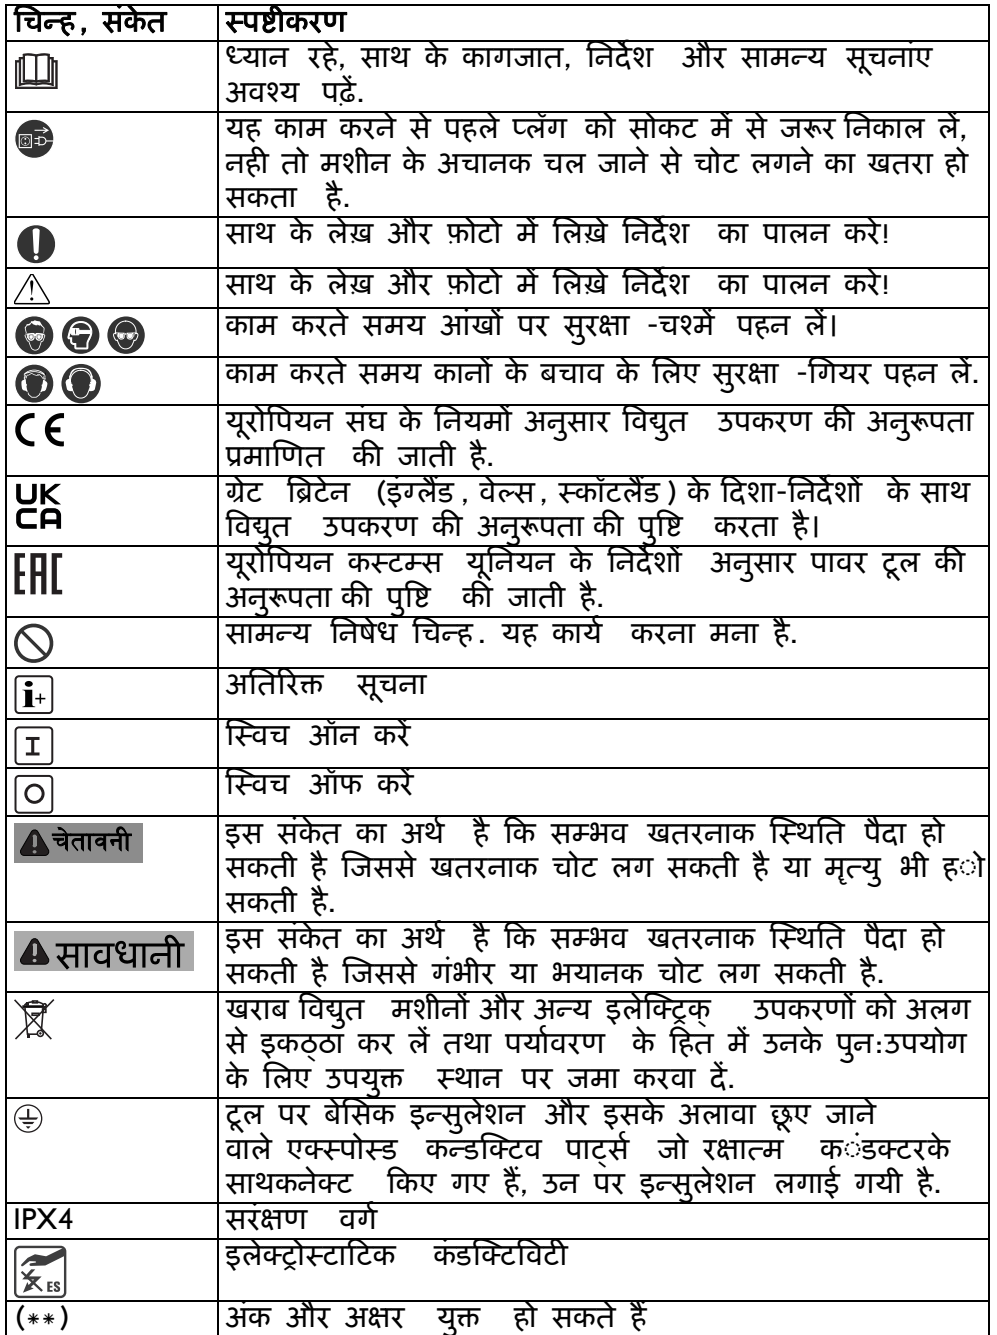 चिन्ह, संकेत स्पष्टीकरण
ध्यान रहे, साथ के कागजात, निर्देश और सामन्य सूचनाएं
अवश्य पढ़ें.
यह काम करने से पहले प्लॅग को सोकट में से जरूर निकाल लें,
नही तो मशीन के अचानक चल जाने से चोट लगने का खतरा हो
सकता है.
साथ के लेख़ और फ़ोटो में लिख़े निर्देश का पालन करे!
साथ के लेख़ और फ़ोटो में लिख़े निर्देश का पालन करे!
काम करते समय आंखों पर सुरक्षा -चश्में पहन लें।
काम करते समय कानों के बचाव के लिए सुरक्षा -गियर पहन लें.
CE यूरोपियन संघ के नियमों अनुसार विद्युत उपकरण की अनुरूपता
प्रमाणित की जाती है.
UK
CA
ग्रेट ब्रिटेन (इंग्लैंड, वेल्स, स्कॉटलैंड) के दिशा-निर्देशों के साथ
विद्युत उपकरण की अनुरूपता की पुष्टि करता है।
EAC यूरोपियन कस्टम्स यूनियन के निर्देशों अनुसार पावर टूल की
अनुरूपता की पुष्टि की जाती है.
सामन्य निषेध चिन्ह. यह कार्य करना मना है.
i+ अतिरिक्त सूचना
I स्विच ऑन करें
O स्विच ऑफ करें
चेतावनी इस संकेत का अर्थ है कि सम्भव खतरनाक स्थिति पैदा हो
सकती है जिससे खतरनाक चोट लग सकती है या मृत्यु भी ह◌ो
सकती है.
सावधानी इस संकेत का अर्थ है कि सम्भव खतरनाक स्थिति पैदा हो
सकती है जिससे गंभीर या भयानक चोट लग सकती है.
खराब विद्युत मशीनों और अन्य इलेक्ट्रिक् उपकरणों को अलग
से इकठ्ठा कर लें तथा पर्यावरण के हित में उनके पुन:उपयोग
के लिए उपयुक्त स्थान पर जमा करवा दें.
टूल पर बेसिक इन्सुलेशन और इसके अलावा छूए जाने
वाले एक्स्पोस्ड कन्डक्टिव पार्ट्स जो रक्षात्म क◌ंडक्टरके
साथकनेक्ट किए गए हैं, उन पर इन्सुलेशन लगाई गयी है.
IPX4 सरंक्षण वर्ग
ES इलेक्ट्रोस्टाटिक कंडक्टिविटी
(**) अंक और अक्षर युक्त हो सकते हैं